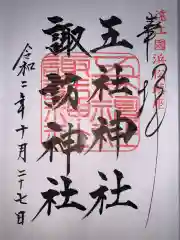 奉拝
五社神社
諏訪神社
令和二年十月二十七日